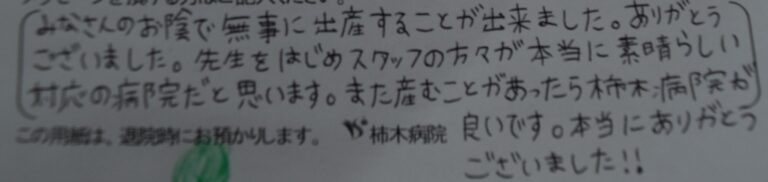 みなさんのお陰で無事に出産することが出来ました。ありがとう
ございました。先生をはじめスタッフの方々が本当に素晴らしい
対応の病院だと思います。また産むことがあったら柿木病院が
この用紙は、退院時にお預かりします。 柿木病院 良いです。本当にありがとう
ございました!!